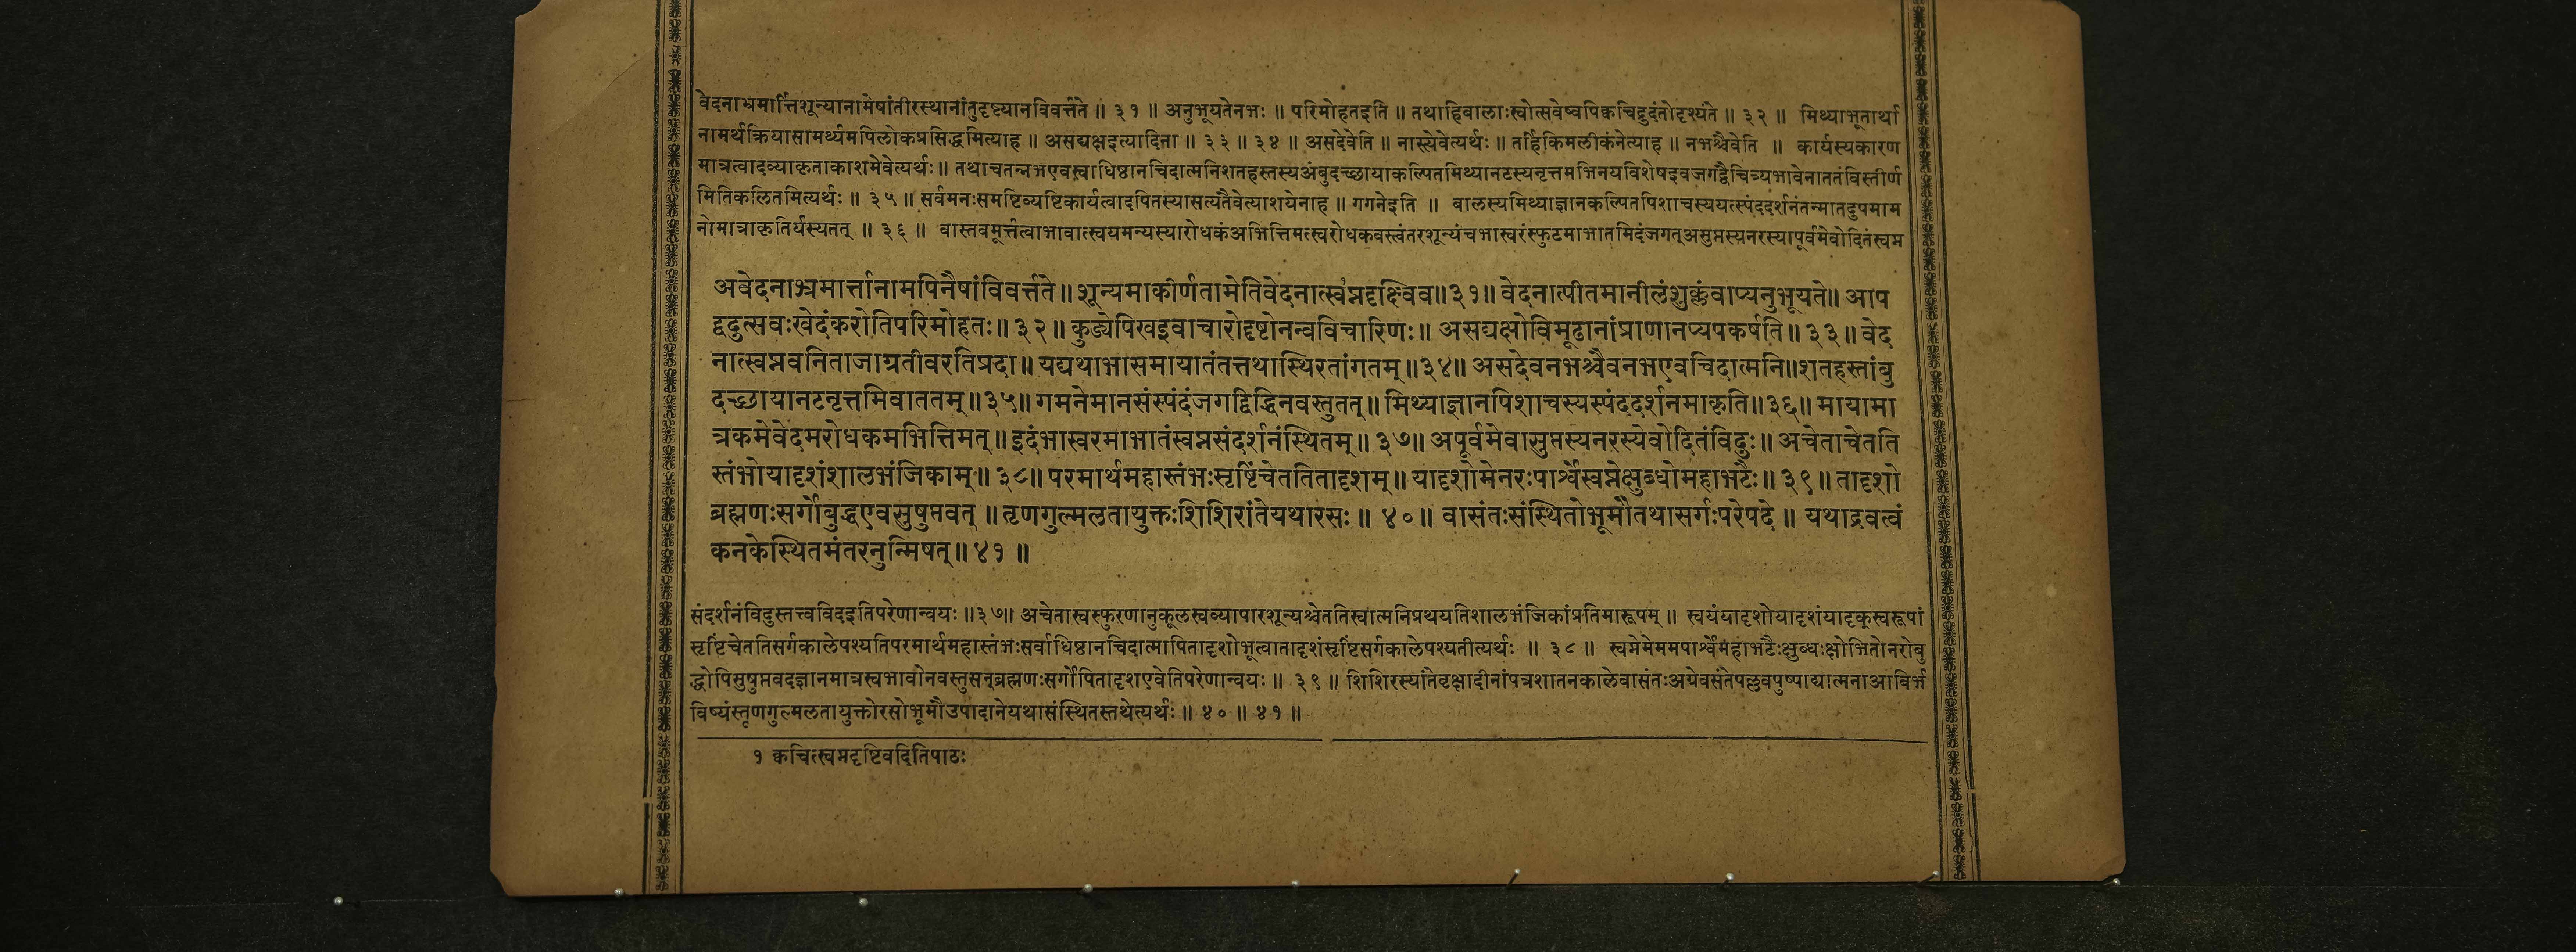 वेदनाभ्रमार्त्तिशून्यानामेषांतीरस्थानांतुदृष्ट्यानविवर्त्तते ॥ ३१ ॥ अनुभूयतेनभः ॥ परिमोहतइति ॥ तथाहिबालाःस्वोत्सवेष्वपिक्वचिद्रुदंतोदृश्यंते ॥ ३२ ॥ मिथ्याभूतार्था
नामर्थक्रियासामर्थ्यमपिलोकप्रसिद्धमित्याह ॥ असद्यक्षइत्यादिना ॥ ३३ ॥ ३४ ॥ असदेवेति ॥ नास्त्येवेत्यर्थः ॥ तर्हिकिमलीकंनेत्याह ॥ नभश्चैवेति ॥ कार्यस्यकारण
मात्रत्वादव्याकृताकाशमेवेत्यर्थः ॥ तथाचतन्नभएवस्वाधिष्ठानचिदात्मनिशतहस्तस्यअंबुदच्छायाकल्पितमिथ्यानटस्यनृत्तमभिनयविशेषइवजगद्वैचित्र्यभावेनाततंविस्तीर्ण
मितिकलितमित्यर्थः ॥ ३५ ॥ सर्वमनःसमष्टिव्यष्टिकार्यत्वादपितस्यासत्यतैवेत्याशयेनाह ॥ गगनेइति ॥ बालस्यमिथ्याज्ञानकल्पितपिशाचस्ययत्स्पंददर्शनंतन्मातदुपमाम
नोमात्राकृतिर्यस्यतत् ॥ ३६ ॥ वास्तवमूर्त्तत्वाभावात्स्वयमन्यस्यारोधकंअभित्तिमत्स्वरोधकवस्त्वंतरशून्यंचभास्वरंस्फुटमाभातमिदंजगत्असुप्तस्यनरस्यापूर्वमेवोदितंस्वप्न
अवेदनाभ्र्यमार्त्तानामपिनैषांविवर्त्तते ॥ शून्यमाकीर्णतामेतिवेदनात्स्वप्नदृक्ष्विव ॥ ३१ ॥ वेदनात्पीतमानीलंशुक्लंवाप्यनुभूयते ॥ आप
द्वदुत्सवःखेदंकरोतिपरिमोहतः ॥ ३२ ॥ कुड्येपिखइवाचारोदृष्टोनन्वविचारिणः ॥ असद्यक्षोविमूढानांप्राणानप्यपकर्षति ॥ ३३ ॥ वेद
नात्स्वप्नवनिताजाग्रतीवरतिप्रदा ॥ यद्यथाभासमायातंतत्तथास्थिरतांगतम् ॥ ३४ ॥ असदेवनभश्चैवनभएवचिदात्मनि ॥ शतहस्तांबु
दच्छायानटनृत्तमिवाततम् ॥ ३५ ॥ गमनेमानसंस्पंदंजगद्विद्धिनवस्तुतत् ॥ मिथ्याज्ञानपिशाचस्यस्पंददर्शनमाकृति ॥ ३६ ॥ मायामा
त्रकमेवेदमरोधकमभित्तिमत् ॥ इदंभास्वरमाभातंस्वप्नसंदर्शनंस्थितम् ॥ ३७ ॥ अपूर्वमेवासुप्तस्यनरस्येवोदितंविदुः ॥ अचेताचेतति
स्तंभोयादृशंशालभंजिकाम् ॥ ३८ ॥ परमार्थमहास्तंभःसृष्टिंचेततितादृशम् ॥ यादृशोमेनरःपार्श्वेस्वप्नेक्षुब्धोमहाभटैः ॥ ३९ ॥ तादृशो
ब्रह्मणःसर्गोबुद्धएवसुषुप्तवत् ॥ तृणगुल्मलतायुक्तःशिशिरांतेयथारसः ॥ ४० ॥ वासंतःसंस्थितोभूमौतथासर्गःपरेपदे ॥ यथाद्रवत्वं
कनकेस्थितमंतरनुन्मिषत् ॥ ४१ ॥
संदर्शनंविदुस्तत्त्वविदइतिपरेणान्वयः ॥ ३७ ॥ अचेतास्वस्फुरणानुकूलस्वव्यापारशून्यश्चेततिस्वात्मनिप्रथयतिशालभंजिकांप्रतिमारूपम् ॥ स्वयंयादृशोयादृशंयादृक्स्वरूपां
सृष्टिंचेततिसर्गकालेपश्यतिपरमार्थमहास्तंभःसर्वाधिष्ठानचिदात्मापितादृशोभूत्वातादृशंसृष्टिंसर्गकालेपश्यतीत्यर्थः ॥ ३८ ॥ स्वप्नेमेममपार्श्वेमहाभटैःक्षुब्धःक्षोभितोनरोबु
द्धोपिसुषुप्तवदज्ञानमात्रस्वभावोनवस्तुसन्ब्रह्मणःसर्गोपितादृशएवेतिपरेणान्वयः ॥ ३९ ॥ शिशिरस्यांतेवृक्षादीनांपत्रशातनकालेवासंतःअग्रेवसंतेपल्लवपुष्पाद्यात्मनाआविर्भ
विष्यंस्तृणगुल्मलतायुक्तोरसोभूमौउपादानेयथासंस्थितस्तथेत्यर्थः ॥ ४० ॥ ४१ ॥
१ क्वचित्स्वप्नदृष्टिवदितिपाठः